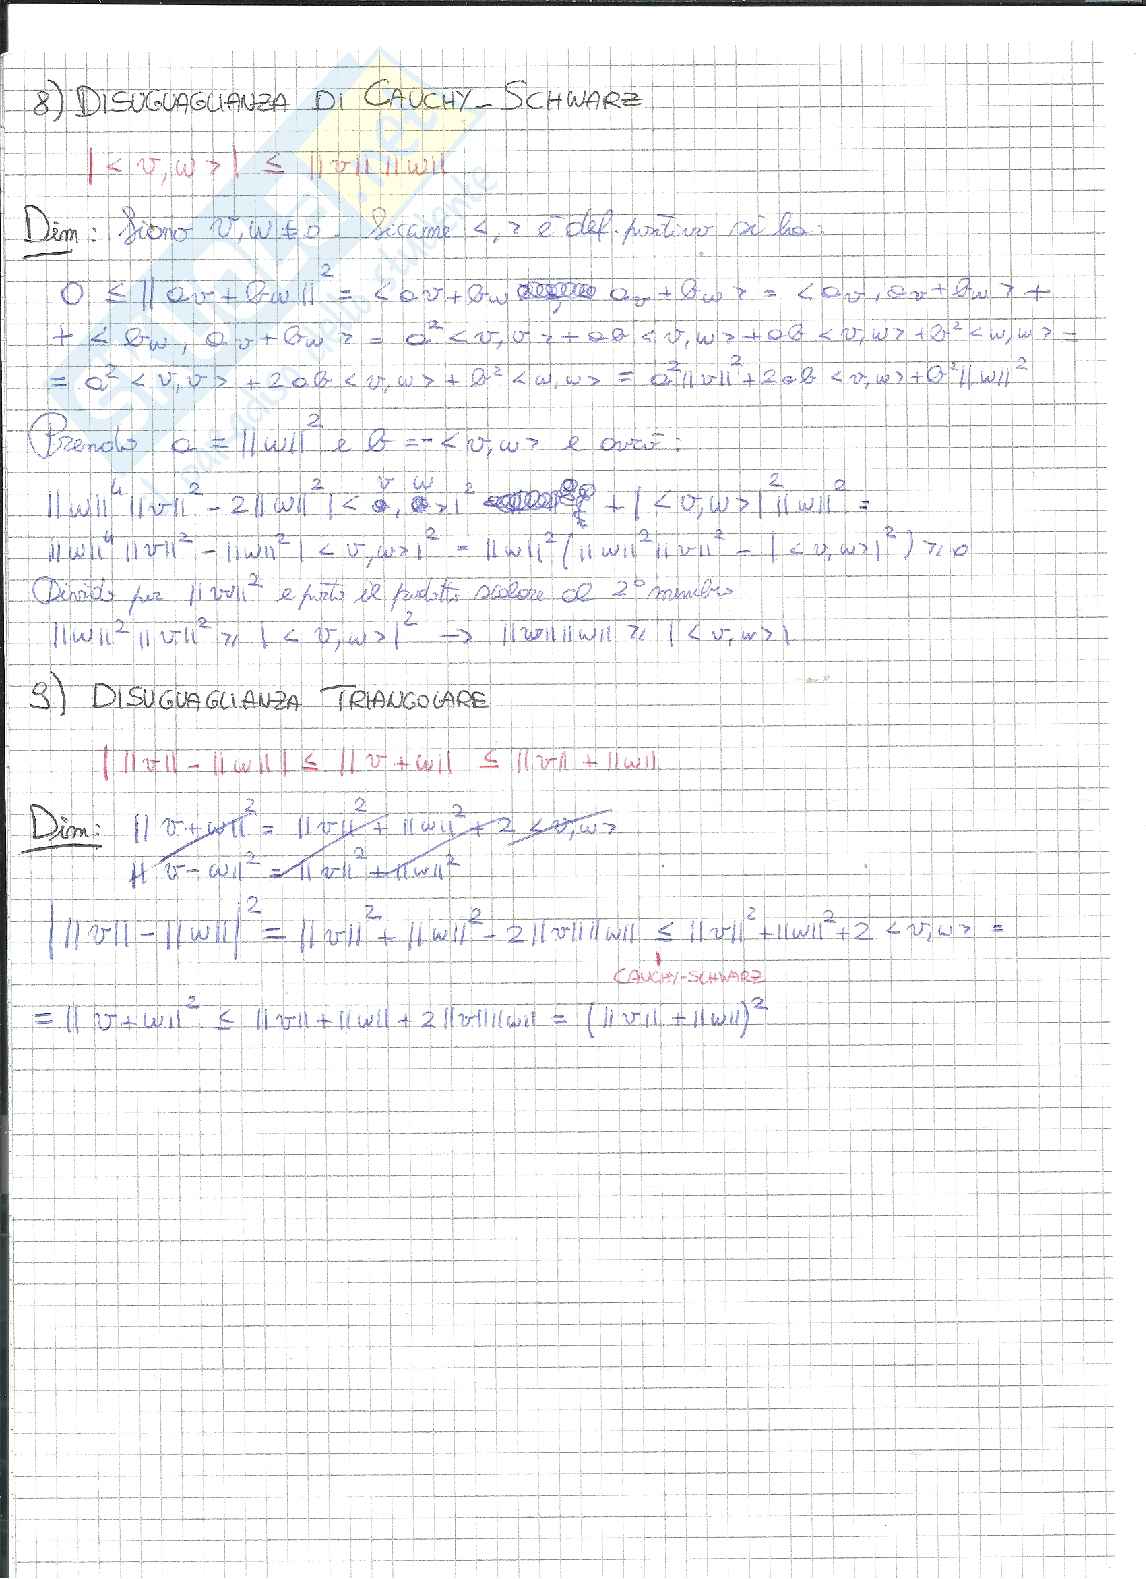 8) DISUGUAGLIANZA DI CAUCHY-SCHWARZ
|<v,w>| ≤ ||v|| ||w||
Dim: Siano v,w ≠ 0. Siccome <,> è def. positivo si ha:
0 ≤ ||av+bw||² = <av+bw, av+bw> = <av, av+bw> +
+ <bw, av+bw> = a²<v,v> + ab<v,w> + ab<v,w> + b²<w,w> =
= a²<v,v> + 2ab<v,w> + b²<w,w> = a²||v||² + 2ab<v,w> + b²||w||²
Prendo a = ||w||² e b = -<v,w> e avrò:
||w||⁴ ||v||² - 2||w||² |<v,w>|² + |<v,w>|² ||w||² =
||w||⁴ ||v||² - ||w||² |<v,w>|² = ||w||² (||w||² ||v||² - |<v,w>|²) ≥ 0
Divido per ||w||² e porto il prodotto scalare al 2° membro
||w||² ||v||² ≥ |<v,w>|² → ||v|| ||w|| ≥ |<v,w>|
9) DISUGUAGLIANZA TRIANGOLARE
| ||v|| - ||w|| | ≤ ||v+w|| ≤ ||v|| + ||w||
Dim: ||v+w||² = ||v||² + ||w||² + 2<v,w>
||v-w||² = ||v||² + ||w||²
| ||v|| - ||w|| |² = ||v||² + ||w||² - 2||v|| ||w|| ≤ ||v||² + ||w||² + 2<v,w> =
CAUCHY-SCHWARZ
= ||v+w||² ≤ ||v|| + ||w|| + 2||v|| ||w|| = (||v|| + ||w||)²